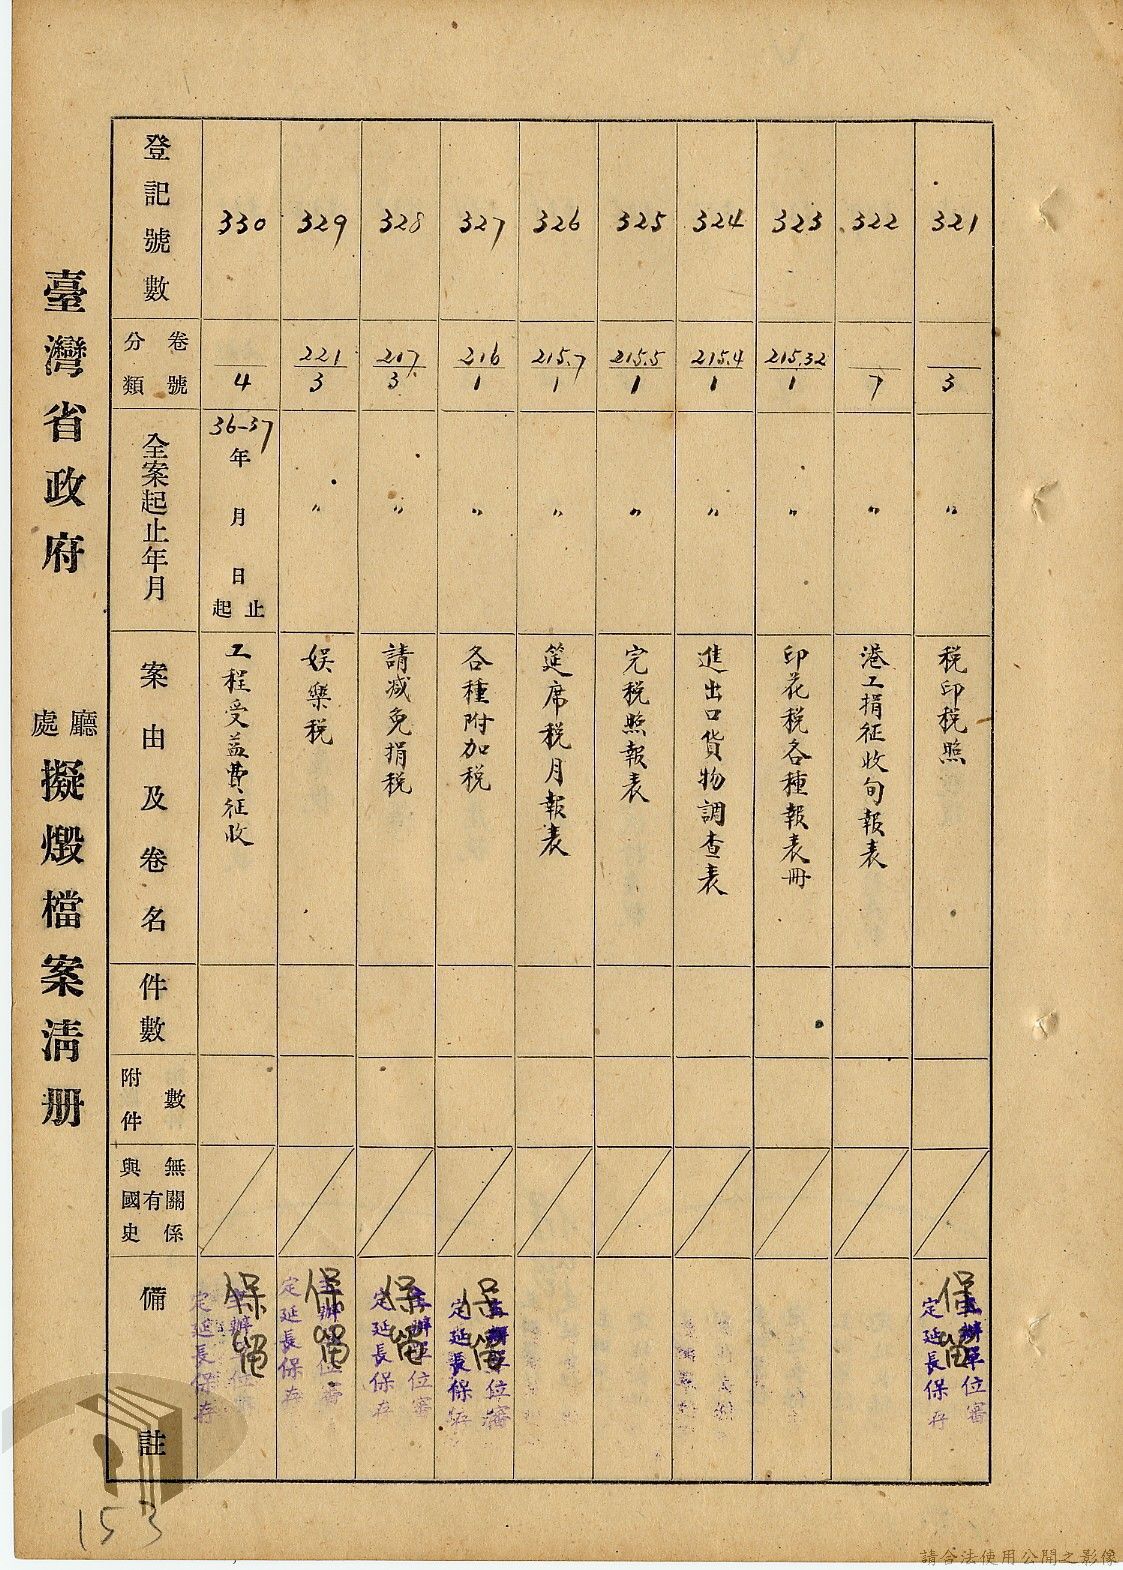 臺灣省政府
廳
處
擬燬檔案清册
登記號數
卷號
分類
全案起止年月
案由及卷名
件數
附件
數
與國史
有
無關係
備註
330
4
36-37
年
月
日
起
止
工程受益費征收
保留
主辦單位審
定延長保存
329
221
3
〃
娛樂税
保留
主辦單位審
定延長保存
328
217
3
〃
請减免捐税
保留
主辦單位審
定延長保存
327
216
1
〃
各種附加税
保留
主辦單位審
定延長保存
326
215.7
1
〃
筵席税月報表
325
215.5
1
〃
完税照報表
324
215.4
1
〃
進出口貨物調查表
323
215.32
1
〃
印花税各種報表冊
322
7
〃
港工捐征收旬報表
321
3
〃
税印税照
保留
主辦單位審
定延長保存
153
請合法使用公開之影像